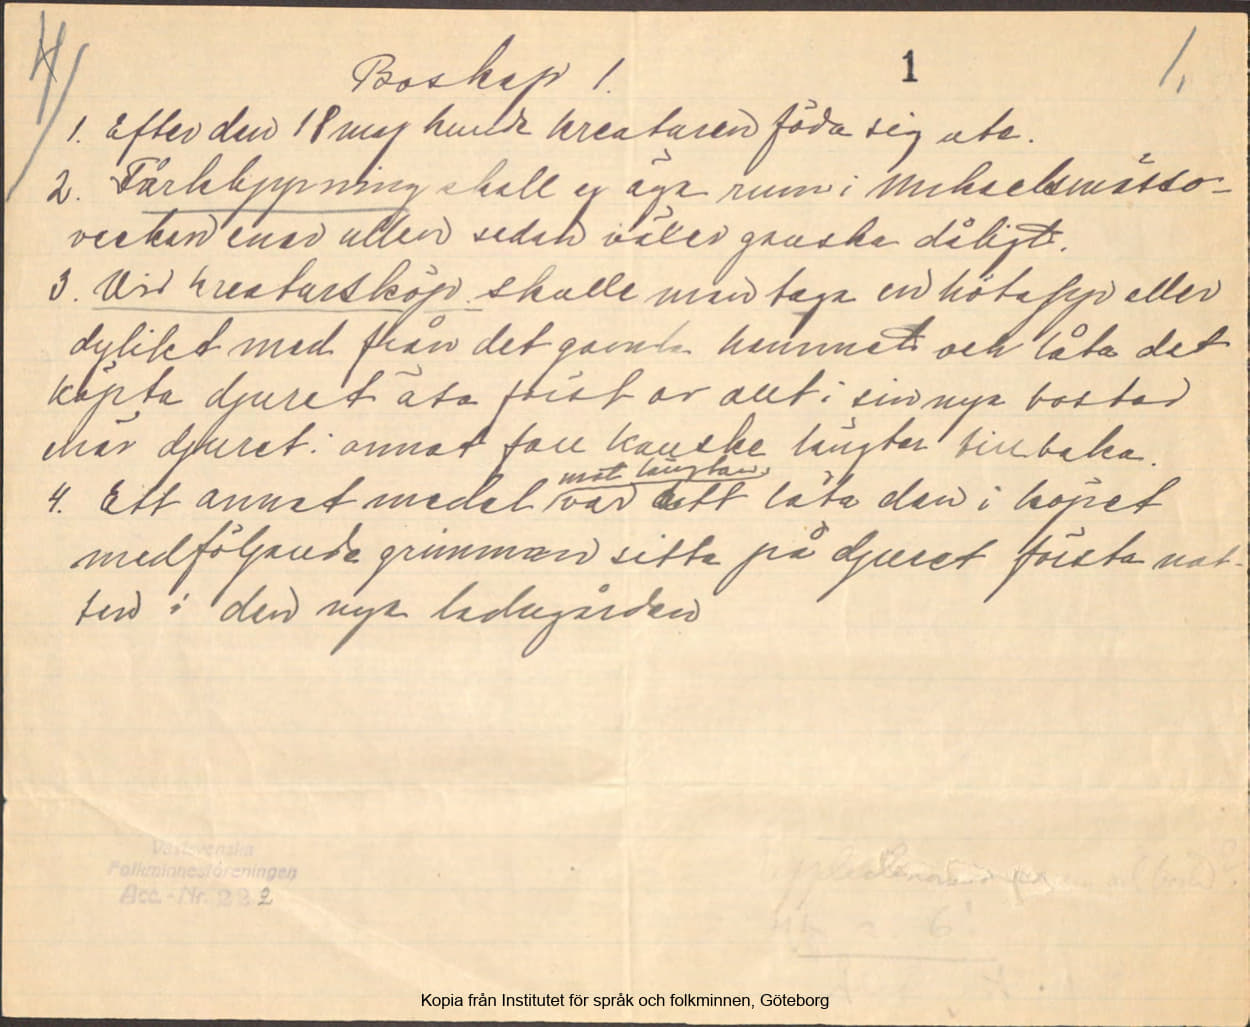 4/
Boskap 1. 1 1.
1. Efter den 18 maj kunde kreaturen föda sig ute.
2. Fårklippning skall ej äga rum i Mikaelsmässo-
veckan enär ullen sedan växer ganska dåligt.
3. Vid kreatursköp skulle man taga en hötapp eller
dylikt med från det gamla hemmet och låta det
köpta djuret äta först av allt i sin nya bostad
enär djuret i annat fall kanske längtar tillbaka.
mot längtan
4. Ett annat medel var att låta den i köpet
medföljande grimman sitta på djuret första nat-
ten i den nya ladugården
Västsvenska
Folkminnesföreningen
Acc.-Nr. 222
Kopia från Institutet för språk och folkminnen, Göteborg